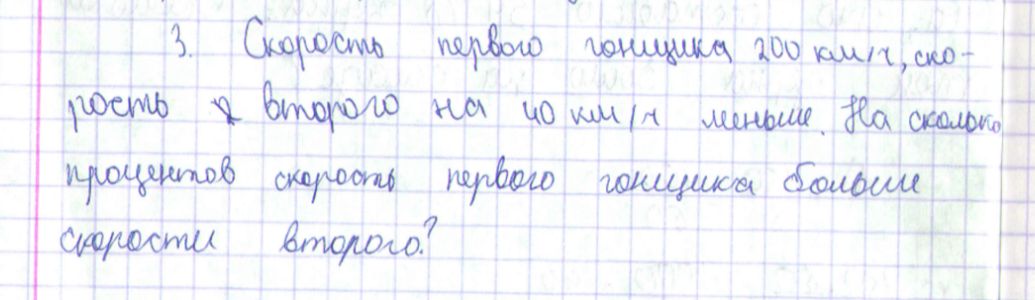 3. Скорость первого гонщика 200 км/ч, ско-
рость второго на 40 км/ч меньше. На сколько
процентов скорость первого гонщика больше
скорости второго?